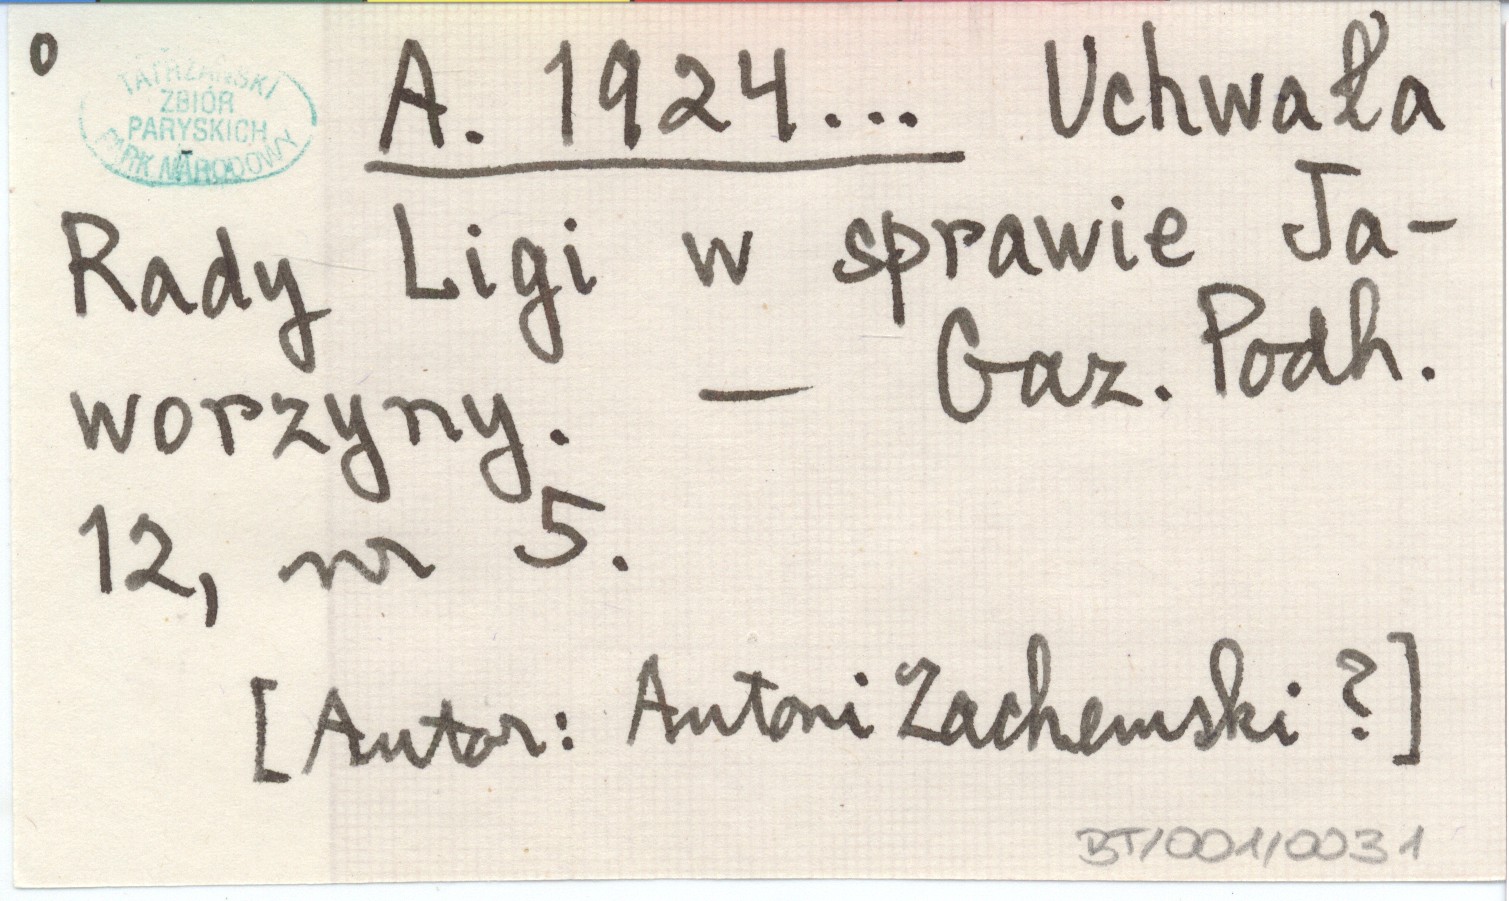 o
TATRZAŃSKI
ZBIÓR
PARYSKICH
PARK NARODOWY
A. 1924... Uchwała
Rady Ligi w sprawie Ja-
worzyny. — Gaz. Podh.
12, nr 5.
[Autor: Antoni Zachemski?]
BT/001/0031